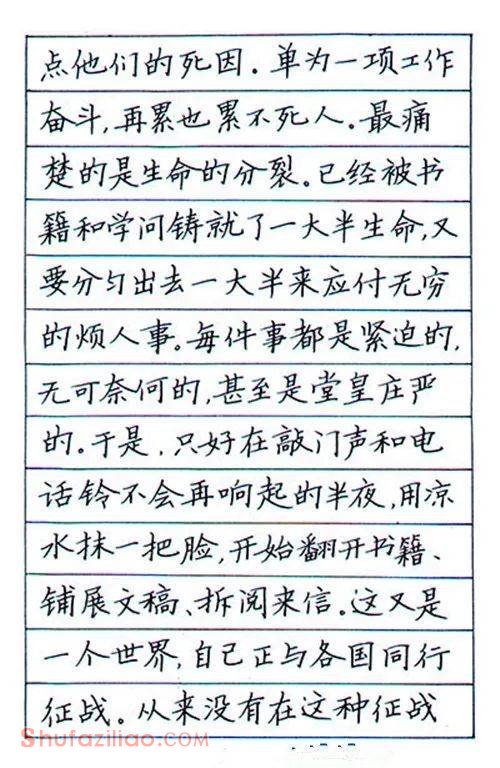 点他们的死因。单为一项工作
奋斗,再累也累不死人。最痛
楚的是生命的分裂。已经被书
籍和学问铸就了一大半生命,又
要分匀出去一大半来应付无穷
的烦人事。每件事都是紧迫的,
无可奈何的,甚至是堂皇庄严
的。于是,只好在敲门声和电
话铃不会再响起的半夜,用凉
水抹一把脸,开始翻开书籍、
铺展文稿、拆阅来信。这又是
一个世界,自己正与各国同行
征战。从来没有在这种征战
Shufaziliao.COM